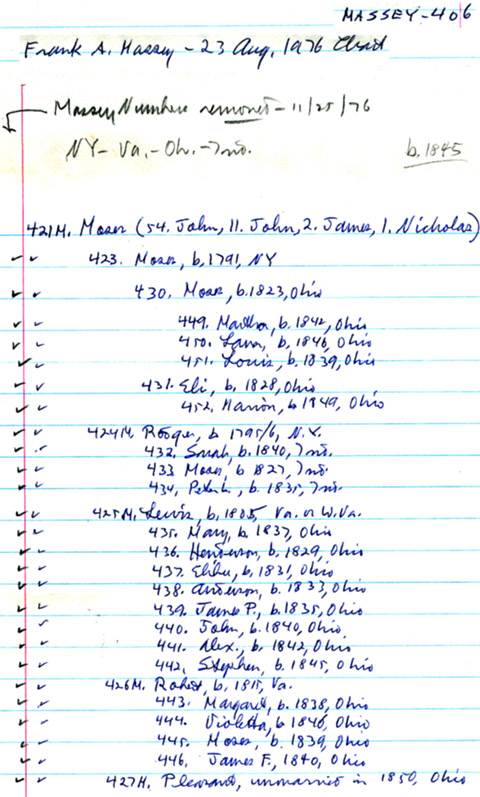 MASSEY-406
Frank A. Massey - 23 Aug, 1976 Chart
Massey Numbers removed - 11/25/76
NY - Va. - Oh. - Ind.
b. 1845
421M. Moses (54. John, 11. John, 2. James, 1. Nicholas)
423. Moses, b. 1791, NY
430. Moses, b. 1823, Ohio
449. Martha, b. 1842, Ohio
450. b. 1846, Ohio
451. Louis, b. 1839, Ohio
431. Eli, b. 1828, Ohio
452. Marion, b 1849, Ohio
424M. b 1795/6, N.Y.
432. Sarah, b. 1840, Ind.
433 Moses, b 1827, Ind.
434, b. 1835, Ind.
425M. Lewis, b, 1805, Va. or W. Va.
435. Mary, b. 1837, Ohio
436. Henderson, b. 1829, Ohio
437. Elihu, b, 1831, Ohio
438. Anderson, b. 1833, Ohio
439. James P., b. 1835, Ohio
440. John, b. 1840, Ohio
441. Alex., b. 1842, Ohio
442. Stephen, b. 1845, Ohio
426M. Robert, b. 1815, Va.
443. Margaret, b. 1838, Ohio
444. Violetta, b 1846, Ohio
445. Moses, b. 1839, Ohio
446. James F., 1840, Ohio
427M. Pleasant, unmarried in 1850, Ohio